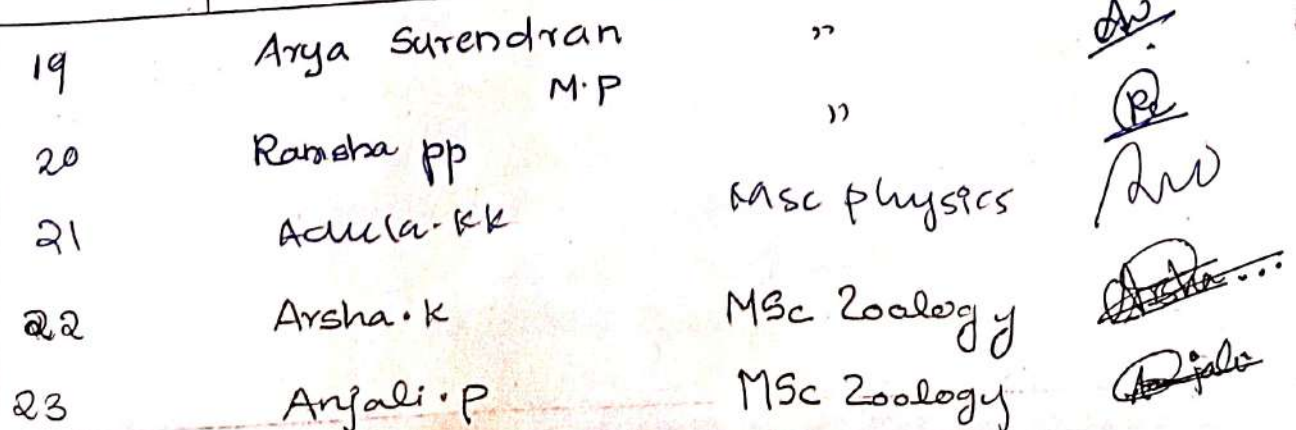 19 Arya Surendran ”
M.P
20 Ramsha pp ”
21 Adula.KK Msc physics
22 Arsha.K MSc Zoology Arsha...
23 Anjali.P MSc Zoology